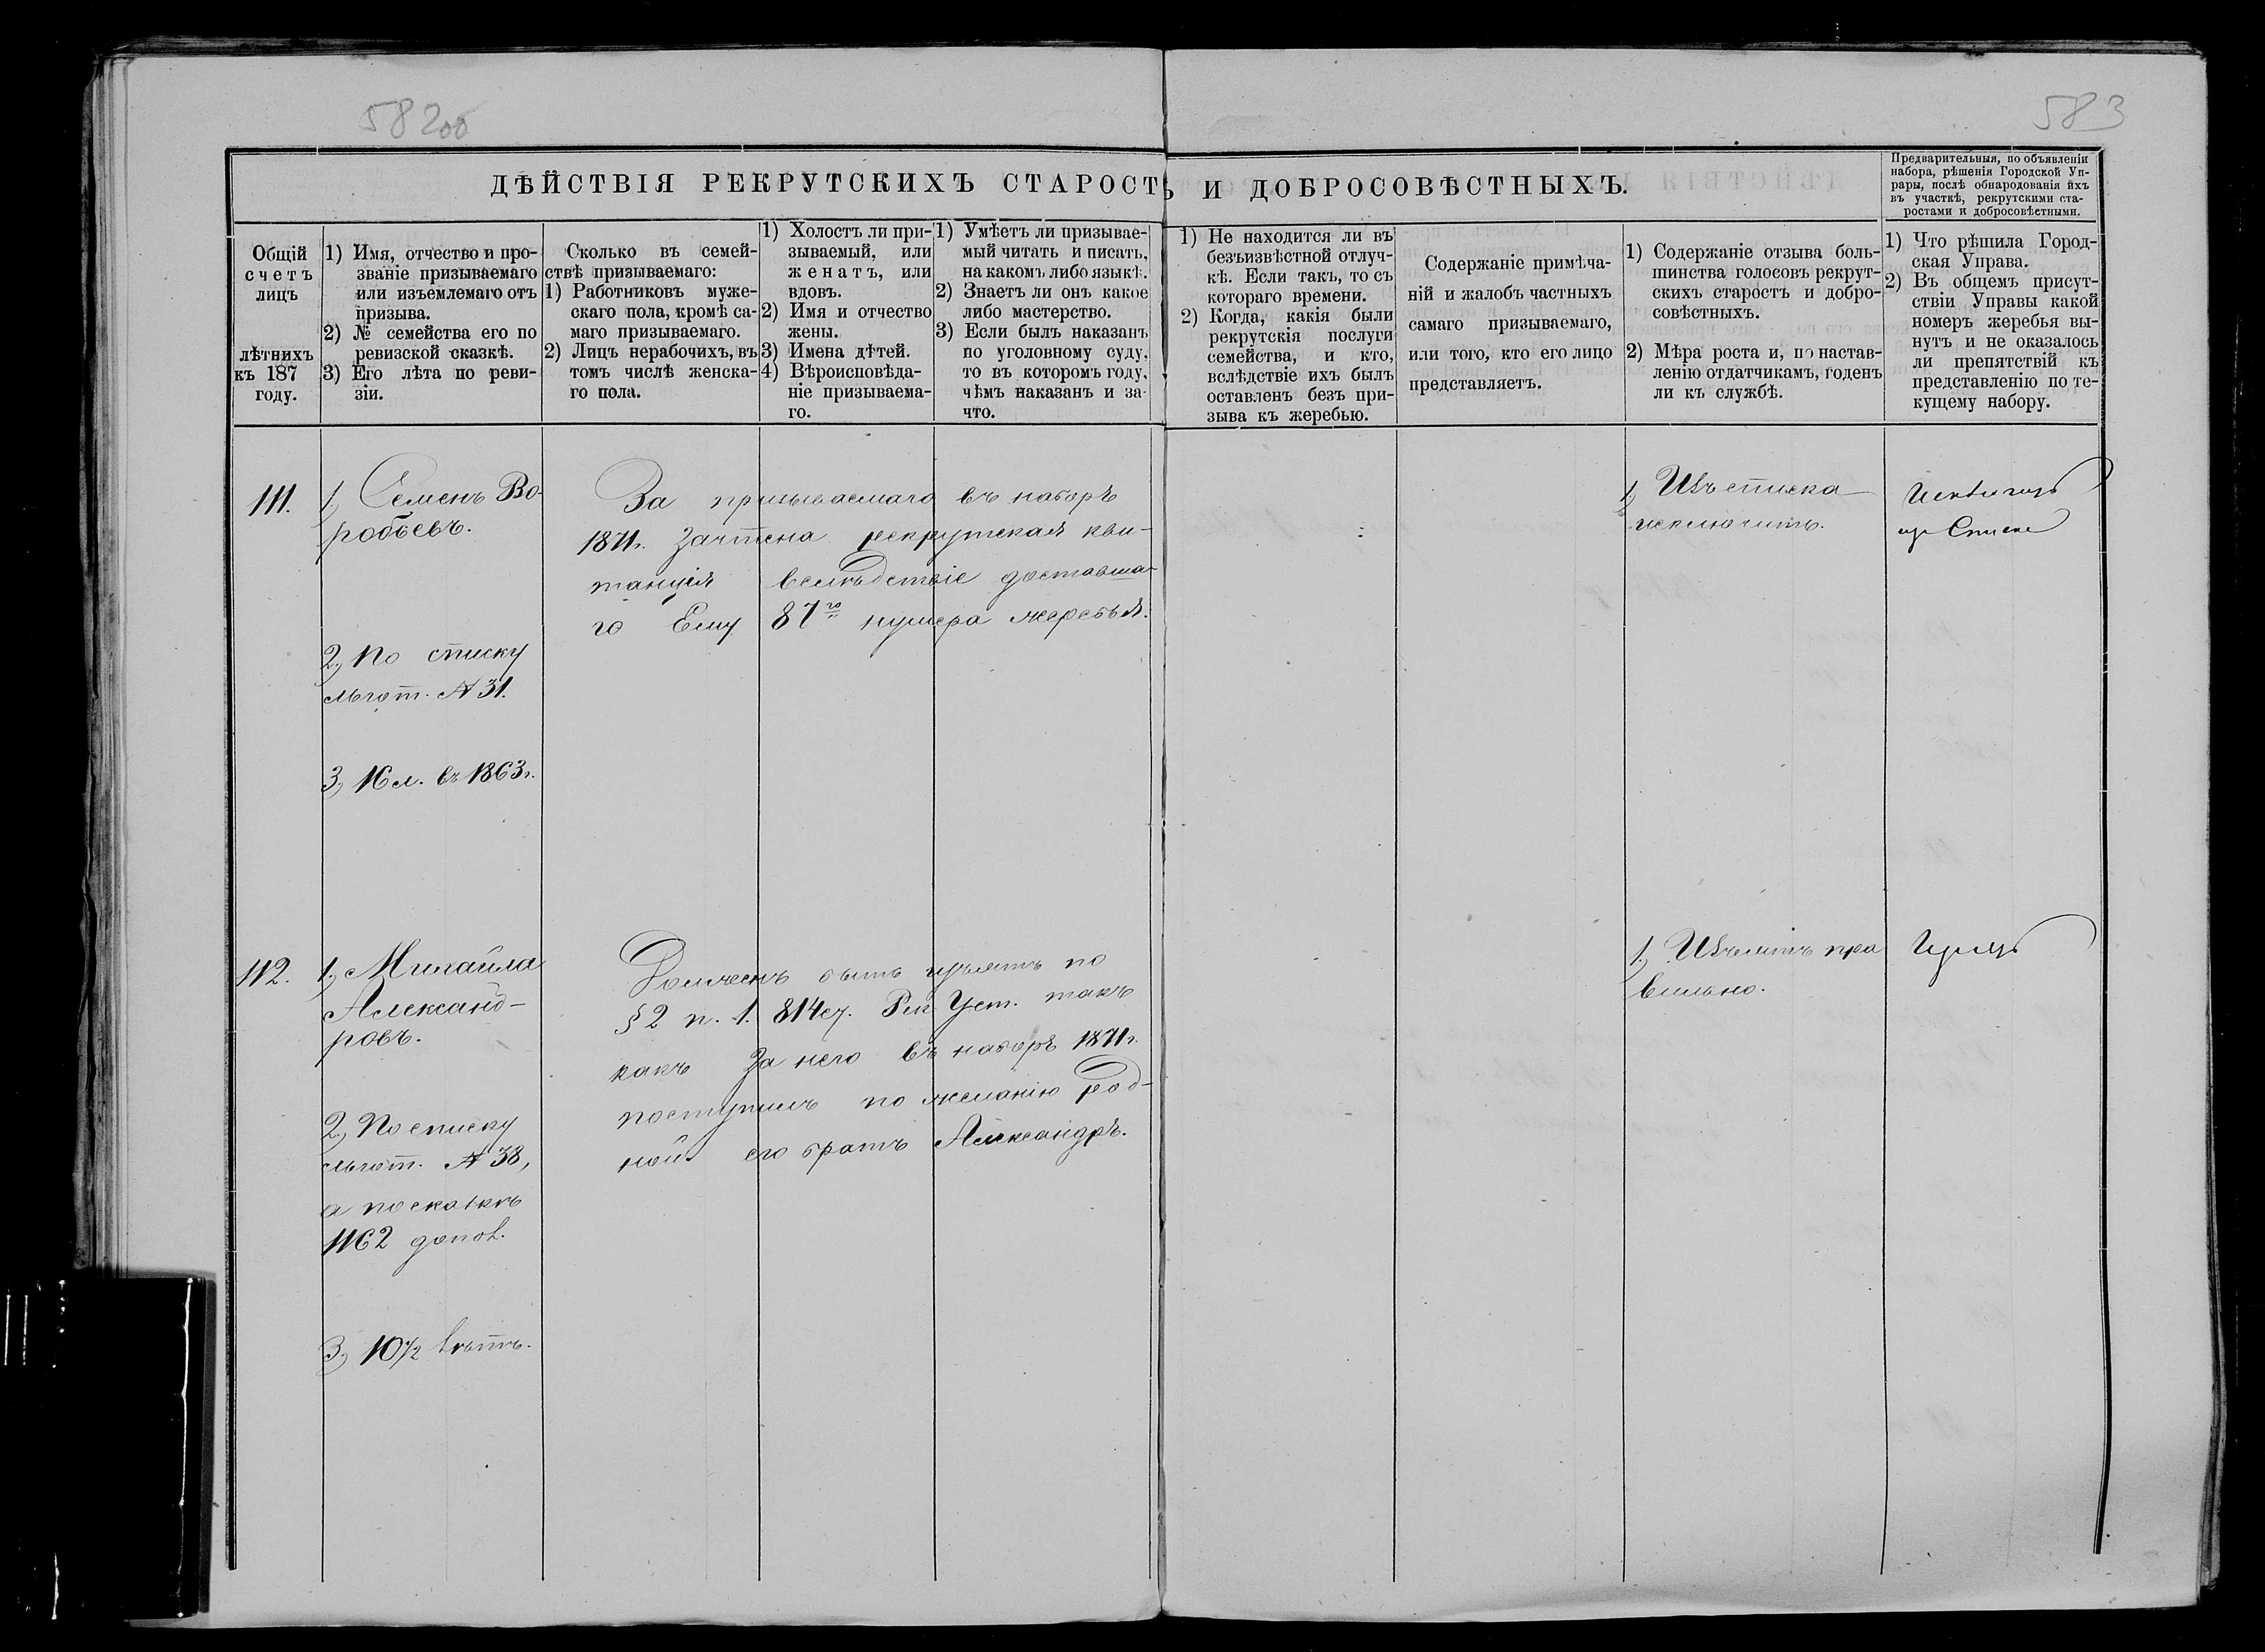 582об
583
ДѢЙСТВІЯ РЕКРУТСКИХЪ СТАРОСТЪ И ДОБРОСОВѢСТНЫХЪ.
Предварительныя, по объявленіи
набора, рѣшенія Городской Уп-
равы, послѣ обнародованія ихъ
въ участкѣ, рекрутскими ста-
ростами и добросовѣстными.
Общій
счетъ
лицъ
лѣтнихъ
къ 187
году.
1) Имя, отчество и про-
званіе призываемаго
или изъемлемаго отъ
призыва.
2) № семейства его по
ревизской сказкѣ.
3) Его лѣта по реви-
зіи.
Сколько въ семей-
ствѣ призываемаго:
1) Работниковъ муже-
скаго пола, кромѣ са-
маго призываемаго.
2) Лицъ нерабочихъ, въ
томъ числѣ женска-
го пола.
1) Холостъ ли при-
зываемый, или
женатъ, или
вдовъ.
2) Имя и отчество
жены.
3) Имена дѣтей.
4) Вѣроисповѣда-
ніе призываема-
го.
1) Умѣетъ ли призывае-
мый читать и писать,
на какомъ либо языкѣ.
2) Знаетъ ли онъ какое
либо мастерство.
3) Если былъ наказанъ
по уголовному суду,
то въ которомъ году,
чѣмъ наказанъ и за-
что.
1) Не находится ли въ
безъизвѣстной отлуч-
кѣ. Если такъ, то съ
котораго времени.
2) Когда, какія были
рекрутскія послуги
семейства, и кто,
вслѣдствіе ихъ былъ
оставленъ безъ при-
зыва къ жеребью.
Содержаніе примѣча-
ній и жалобъ частныхъ
самаго призываемаго,
или того, кто его лицо
представляетъ.
1) Содержаніе отзыва боль-
шинства голосовъ рекрут-
скихъ старостъ и добро-
совѣстныхъ.
2) Мѣра роста и, по настав-
ленію отдатчикамъ, годенъ
ли къ службѣ.
1) Что рѣшила Город-
ская Управа.
2) Въ общемъ присут-
ствіи Управы какой
номеръ жеребья вы-
нутъ и не оказалось
ли препятствій къ
представленію по те-
кущему набору.
111.
1, Семенъ Во-
робьевъ.
2, По списку
льгот. № 31.
3, 16 л. въ 1863 г.
За призываемаго въ наборъ
1871 г. зачтена рекрутская кви-
танція вслѣдствіе доставша-
го Ему 87го нумера жеребья.
1, Изъ списка
исключить.
Исключить
изъ Списка
112.
1, Михайла
Александ-
ровъ.
2, По списку
льгот. № 38,
а по сказкѣ
1162 допол.
3, 10 1/2 лѣтъ.
Долженъ быть изъятъ по
§ 2 п. 1. 814 ст. Рек. Уст. такъ
какъ за него въ наборъ 1871 г.
поступилъ по желанію род-
ной его братъ Александръ.
1, Изъятъ пра
вильно.
Изъять